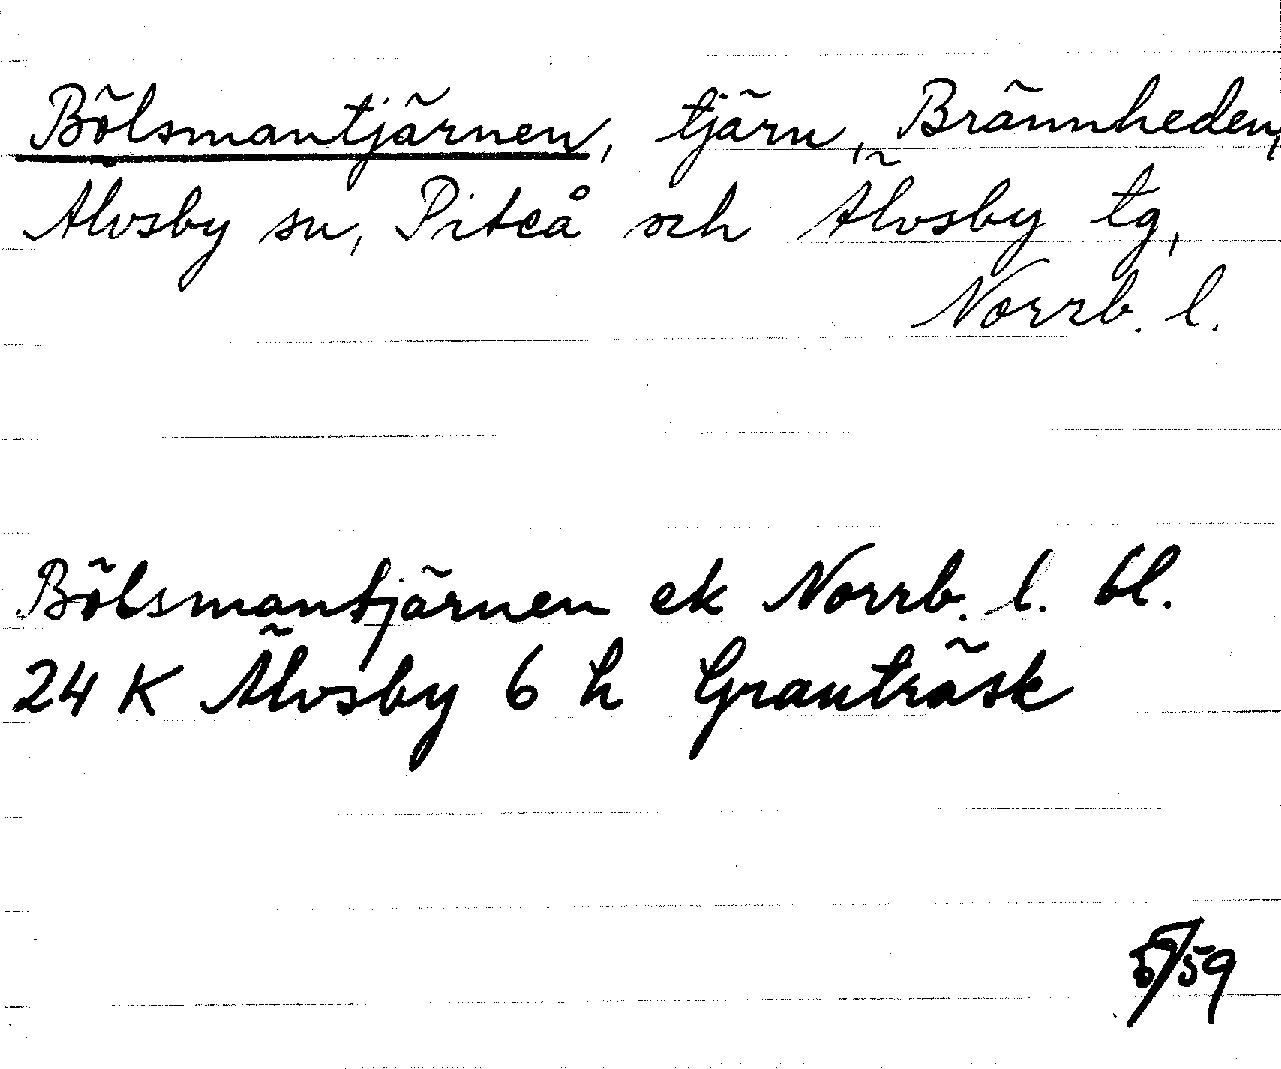 Bölsmantjärnen, tjärn, Brännheden,
Älvsby sn, Piteå och Älvsby tg,
Norrb. l.
Bölsmantjärnen ek Norrb. l. bl.
24 K Älvsby 6 h Granträsk
/59